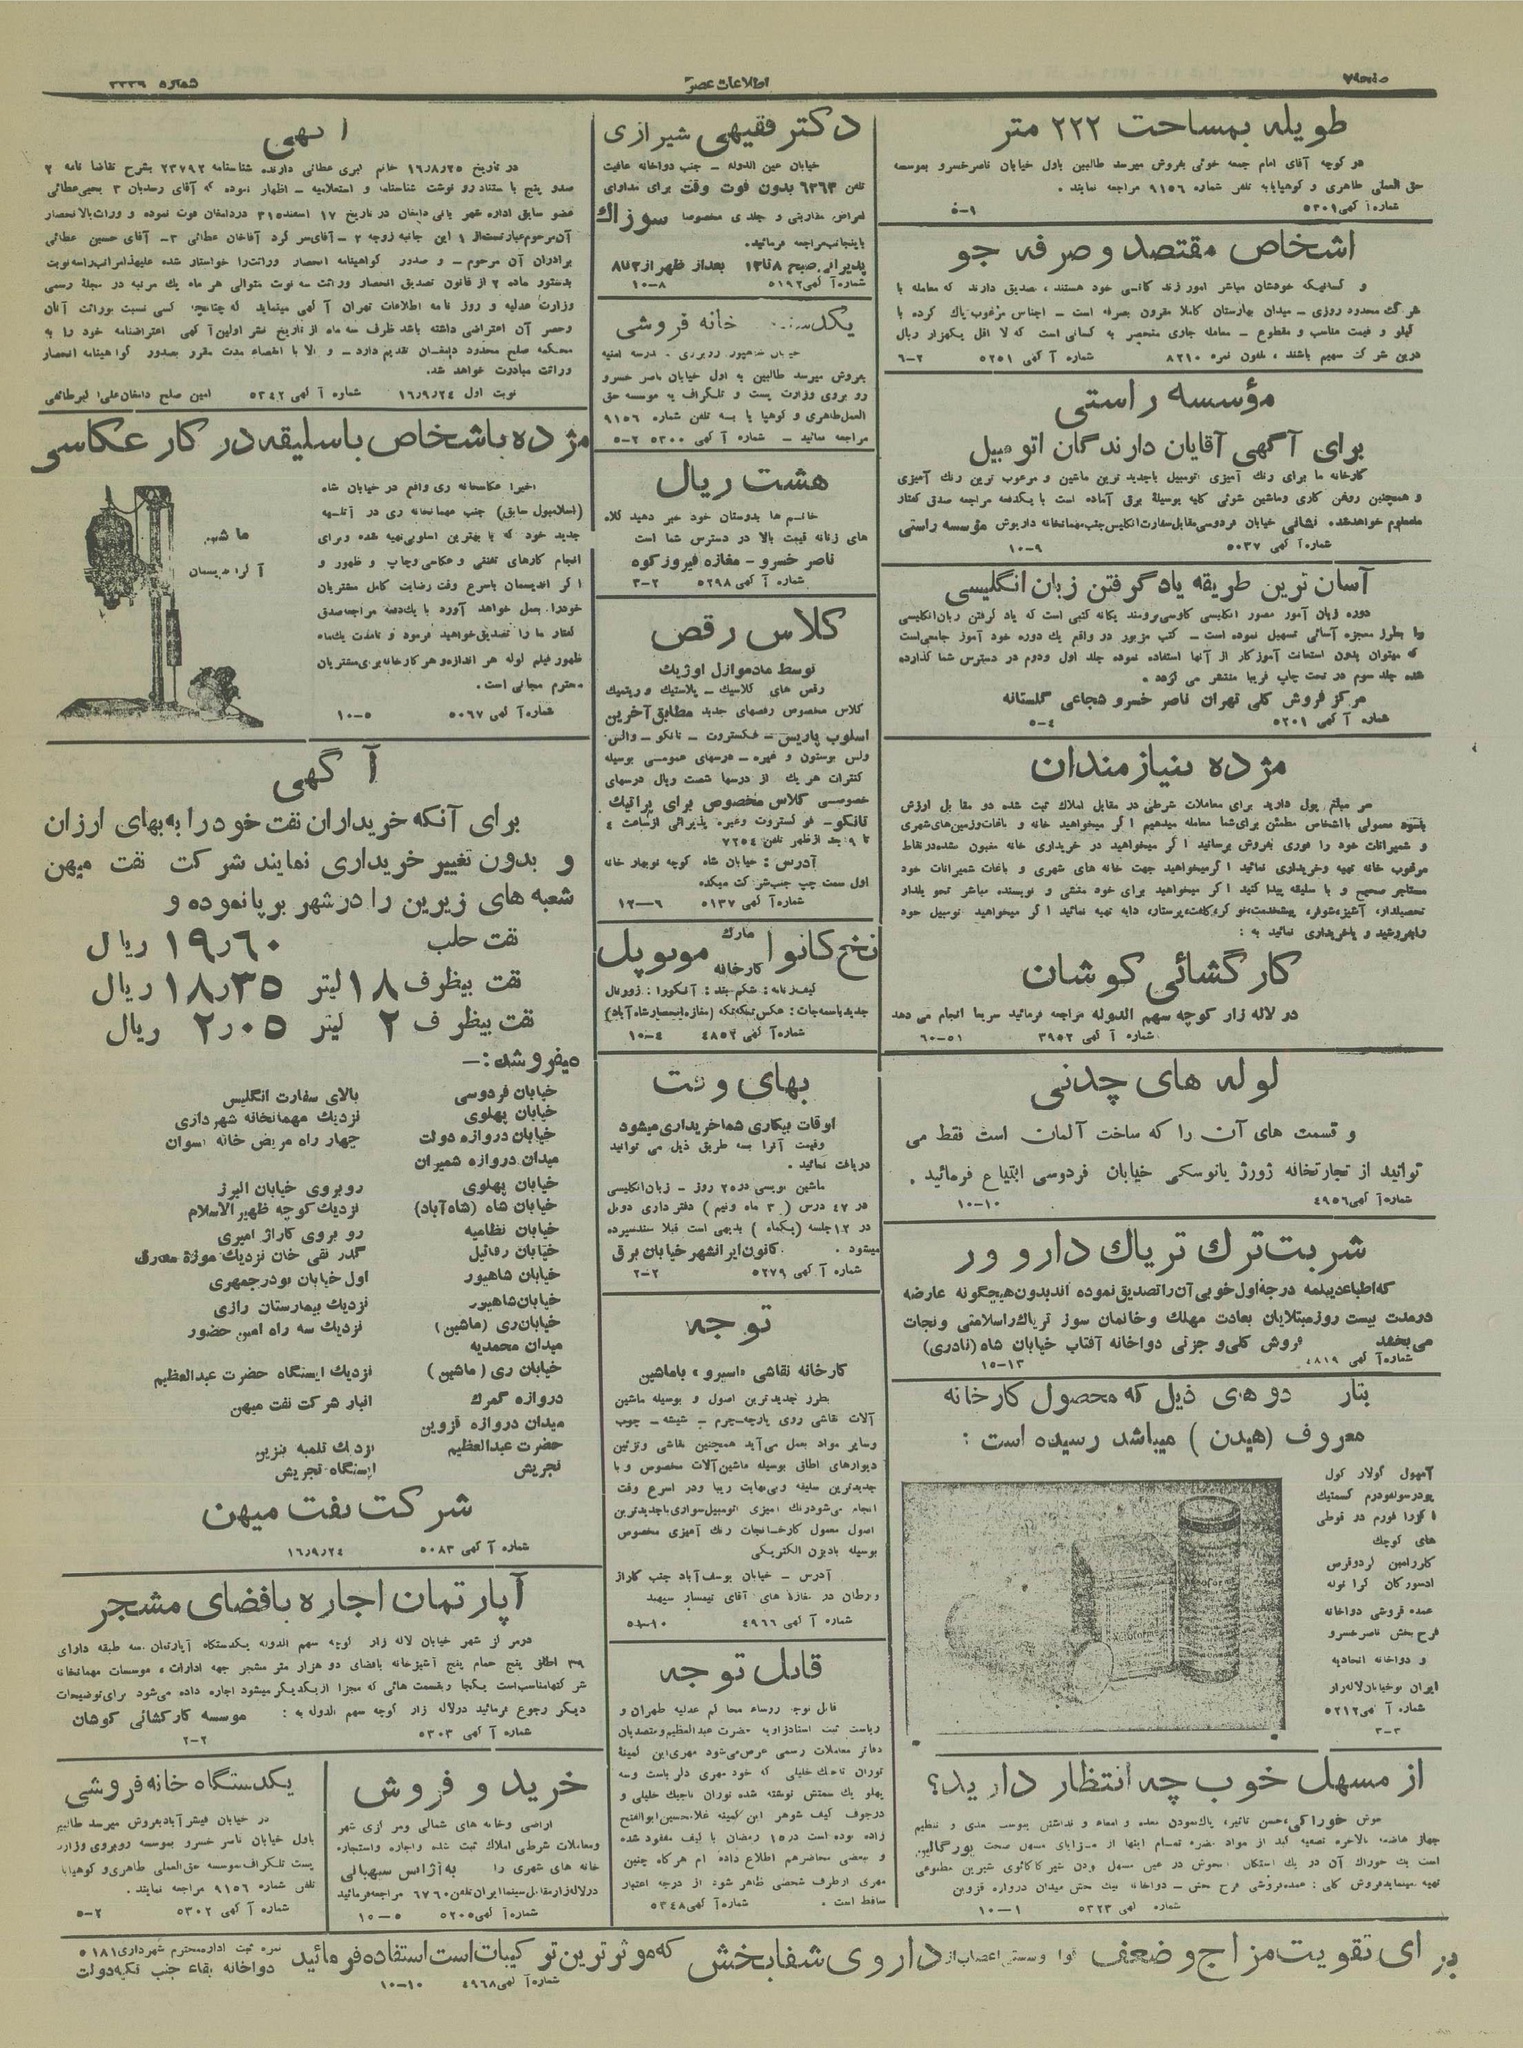 صفحه ۷
اطلاعات عصر
شماره ۳۳۳۹
طویله بمساحت ۲۲۲ متر
در کوچه آقای امام جمعه خوئی بفروش میرسد طالبین باول خیابان ناصرخسرو بموسسه
حق العملی طاهری و کوهیا یا به تلفن شماره ۹۱۵۶ مراجعه نمایند .
شماره آگهی ۵۳۰۱ ۹-۵
اشخاص مقتصد و صرفه جو
و کسانیکه خودشان مباشر امور زندگانسی خود هستند ، تصدیق دارند که معامله با
شرکت محدود روزی - میدان بهارستان کاملا مقرون بصرفه است - اجناس مرغوب پاک کرده با
کیلو و قیمت مناسب و مقطوع - معامله جاری منحصر به کسانی است که لااقل یکهزار ریال
درین شرکت سهیم باشند ، تلفون نمره ۸۲۱۰ شماره آگهی ۵۲۵۱ ۲-۶
مؤسسه راستی
برای آگهی آقایان دارندگان اتومبیل
کارخانه ما برای رنگ آمیزی اتومبیل باجدید ترین ماشین و مرغوب ترین رنگ آمیزی
و همچنین روغن کاری وماشین شوئی کلیه بوسیلهٔ برقی آماده است با یکدفعه مراجعه صدق گفتار
معلوم خواهدشد. نشانی خیابان فردوسی مقابل سفارت انگلیس جنب مهمانخانه داریوش مؤسسه راستی
شماره آگهی ۵۰۳۷ ۹-۱۰
آسان ترین طریقه یادگرفتن زبان انگلیسی
دوره زبان آموز مصور انگلیسی کاوسی برومند یگانه کتبی است که یاد گرفتن زبان انگلیسی
را بطرز معجزه آسائی تسهیل نموده است - کتب مزبور در واقع یک دوره خود آموز جامعی است
که میتوان بدون استعانت آموزگار از آنها استفاده نموده جلد اول ودوم در دسترس شما گذارده
شده جلد سوم در تحت چاپ قریبا منتشر می گردد .
مرکز فروش کلی تهران ناصر خسرو شجاعی گلستانه
شماره آگهی ۵۲۰۱ ۴-۵
مژده بنیازمندان
هر مبلغ پول دارید برای معاملات شرطی در مقابل املاک ثبت شده دو مقابل ارزش
باسود معمولی با اشخاص مطمئن برای شما معامله میدهیم اگر میخواهید خانه و باغات وزمین های شهری
و شمیرانات خود را فوری بفروش برسانید اگر میخواهید در خریداری خانه مغبون نشده در نقاط
مرغوب خانه تهیه وخریداری نمائید اگر میخواهید جهت خانه های شهری و باغات شمیرانات خود
مستاجر صحیح و با سلیقه پیدا کنید اگر میخواهید برای خود منشی و نویسنده مباشر تحویلدار
تحصیلدار، آشپز، شوفر، پیشخدمت، نوکر، کلفت، پرستار، دایه تهیه نمائید اگر میخواهید اتومبیل خود
رابفروشید و یاخریداری نمائید به :
کارگشائی کوشان
در لاله زار کوچه سهم الدوله مراجعه فرمائید سریعا انجام می دهد
شماره آگهی ۳۹۵۲ ۵۱-۶۰
لوله های چدنی
و قسمت های آن را که ساخت آلمان است فقط می
توانید از تجارتخانه ژورژ یانوسکی خیابان فردوسی ابتیاع فرمائید .
شماره آگهی ۴۹۵۶ ۱۰-۱۰
شربت ترک تریاک دارو ور
که اطباء دیپلمه درجه اول خوبی آن را تصدیق نموده اند بدون هیچگونه عارضه
در مدت بیست روز مبتلایان بعادت مهلک وخانمان سوز تریاک را سلامتی و نجات
می بخشد فروش کلی و جزئی دواخانه آفتاب خیابان شاه (نادری)
شماره آگهی ۴۸۱۹ ۱۳-۱۵
بتازگی دو های ذیل که محصول کارخانه
معروف (هیدن) میباشد رسیده است :
آمپول گولار گول
پودر سولفودرم کسمتیک
های کوچک
عمده فروشی دواخانه
فرح بخش ناصرخسرو
و دواخانه اتحادیه
ایران نوخیابان لاله زار
شماره آگهی ۵۲۱۲
۳-۳
از مسهل خوب چه انتظار دارید؟
خوش خوراکی، حسن تاثیر، پاک نمودن معده و امعاء و نداشتن یبوست بعدی و تنظیم
جهاز هاضمه بالاخره تصفیه کبد از مواد مضره تمام اینها از مزایای مسهل صحت پورگالین
تهیه مینماید فروش کلی : عمده فروشی فرح بخش - دواخانه نیک بخش میدان دروازه قزوین
شماره آگهی ۵۳۲۳ ۱-۱۰
دکتر فقیهی شیرازی
خیابان عین الدوله - جنب دواخانه عافیت
تلفن ۶۳۶۳ بدون فوت وقت برای مداوای
امراض مقاربتی و جلدی مخصوصا سوزاک
باینجانب مراجعه فرمائید.
پذیرائی صبح ۸ تا ۱۲ بعد از ظهر از ۲ تا ۸
شماره آگهی ۵۱۹۲ ۸-۱۰
یکدستگاه خانه فروشی
خیابان شاهپور روبروی مدرسه امنیه
بفروش میرسد طالبین به اول خیابان ناصر خسرو
رو بروی وزارت پست و تلگراف به موسسه حق
العمل طاهری و کوهیا یا بسه تلفن شماره ۹۱۵۶
مراجعه نمائید - شماره آگهی ۵۳۰۰ ۲-۵
هشت ریال
خانم ها بدوستان خود خبر دهید کلاه
های زنانه قیمت بالا در دسترس شما است
ناصر خسرو - مغازه فیروزکوه
شماره آگهی ۵۲۹۸ ۲-۳
کلاس رقص
توسط مادموازل اوژیک
رقص های کلاسیک - پلاستیک و ریتمیک
کلاس مخصوص رقصهای جدید مطابق آخرین
اسلوب پاریس - فکستروت - تانگو - والس
ولس بوستون و غیره - درسهای عمومی بوسیله
کنترات هر یک از درسها شصت ریال درسهای
خصوصی کلاس مخصوص برای پراتیک
تانگو - فوکستروت وغیره پذیرائی از ساعت ۴
تا ۹ بعد از ظهر تلفن ۷۲۵۴
آدرس : خیابان شاه کوچه نوبهار خانه
اول سمت چپ جنب شرکت میکده
شماره آگهی ۵۱۳۷ ۶-۱۲
نخ کانوا مارک کارخانه موبوپل
شماره آگهی ۴۸۵۲ ۴-۱۰
بهای وقت
اوقات بیکاری شما خریداری میشود
وقیمت آنرا بسه طریق ذیل می توانید
دریافت نمائید .
ماشین نویسی در ۲۵ روز - زبان انگلیسی
در ۴۷ درس (۳ ماه ونیم) دفترداری دوبل
در ۱۲ جلسه (یکماه) بدیهی است قبلا سند سپرده
میشود . کانون ایرانشهر خیابان برق
شماره آگهی ۵۲۷۹ ۲-۲
توجه
کارخانه نقاشی «اسپرو» باماشین
بطرز جدیدترین اصول و بوسیله ماشین
آلات نقاشی روی پارچه - چرم - شیشه - چوب
وسایر مواد بعمل می آید همچنین نقاشی وتزئین
دیوارهای اطاق بوسیله ماشین آلات مخصوص و با
جدیدترین سلیقه وبی نهایت زیبا ودر اسرع وقت
انجام می شود رنگ آمیزی اتومبیل سواری باجدیدترین
اصول معمول کارخانجات رنگ آمیزی مخصوص
بوسیله بادبزن الکتریکی
آدرس - خیابان یوسف آباد جنب گاراژ
وبرطان در مغازه های آقای تیمسار سپهبد
شماره آگهی ۴۹۶۶ ۱۰-۵
قابل توجه
قابل توجه روساء محاکم عدلیه طهران و
ریاست ثبت اسناد زاویه حضرت عبدالعظیم و متصدیان
دفاتر معاملات رسمی عرض می شود مهری این کمینهٔ
توران تاجبک خلیلی که خود مهری دلر باست وسه
پهلو یک سمتش نوشته شده توران تاجبک خلیلی و
درجوف کیف شوهر این کمینه غلامحسین ابوالفتح
زاده بوده است در ۱۵ رمضان با کیف مفقود شده
و بعضی محاضر هم اطلاع داده ام هرگاه چنین
مهری از طرف شخصی ظاهر شود از درجه اعتبار
ساقط است . شماره آگهی ۵۳۴۸
آگهی
در تاریخ ۱۶/۸/۲۵ خانم کبری عطائی دارنده شناسنامه ۲۳۷۹۲ بشرح تقاضا نامه ۲
صدو پنج با ستناد رو نوشت شناسنامه و استعلامیه - اظهار نموده که آقای رسدبان ۳ یحیی عطائی
عضو سابق اداره شهربانی دامغان در تاریخ ۱۷ اسفند ۳۱۵ در دامغان فوت نموده و وراث بالانحصار
آن مرحوم عبارتست از ۱ این جانبه زوجه ۲ - آقای سرگرد آقاخان عطائی ۳ - آقای حسین عطائی
برادران آن مرحوم - و صدور گواهینامه انحصار وراثت را خواستار شده علیهذا مراتب را سه نوبت
بدستور ماده ۲ از قانون تصدیق انحصار وراثت سه نوبت متوالی هر ماه یک مرتبه در مجلهٔ رسمی
وزارت عدلیه و روز نامه اطلاعات تهران آگهی مینماید که چنانچه کسی نسبت بوراثت آنان
وحصر آن اعتراضی داشته باشد ظرف سه ماه از تاریخ نشر اولین آگهی اعتراضنامه خود را به
محکمه صلح محدود دامغان تقدیم دارد - و الا با انقضاء مدت مقرر بصدور گواهینامه انحصار
وراثت مبادرت خواهد شد.
نوبت اول ۱۶/۹/۲۴ شماره آگهی ۵۳۴۲ امین صلح دامغان علی اکبر طائفی
مژده باشخاص باسلیقه در کار عکاسی
اخیرا عکاسخانه ری واقع در خیابان شاه
(اسلامبول سابق) جنب مهمانخانه ری در آتلیه
جدید خود که با بهترین اسلوبی تهیه شده وبرای
انجام کارهای تفننی و عکاسی وچاپ و ظهور و
اگراندیسمان باسرع وقت رضایت کامل مشتریان
خود را بعمل خواهد آورد با یک دفعه مراجعه صدق
گفتار ما را تصدیق خواهید فرمود و تامدت یک ماه
ظهور فیلم لوله هر اندازه و هر کارخانه برای مشتریان
محترم مجانی است .
ماشین
آگراندیسمان
شماره آگهی ۵۰۶۷ ۵-۱۰
آگهی
برای آنکه خریداران نفت خود را به بهای ارزان
و بدون تغییر خریداری نمایند شرکت نفت میهن
شعبه های زیرین را در شهر برپا نموده و
نفت حلب ۱۹٫۶۰ ریال
نفت بیظرف ۱۸ لیتر ۱۸٫۳۵ ریال
نفت بیظرف ۲ لیتر ۲٫۰۵ ریال
میفروشد :-
خیابان فردوسی بالای سفارت انگلیس
خیابان پهلوی نزدیک مهمانخانه شهرداری
خیابان دروازه دولت چهار راه مریض خانه نسوان
میدان دروازه شمیران
خیابان پهلوی روبروی خیابان البرز
خیابان شاه (شاه آباد) نزدیک کوچه ظهیرالاسلام
خیابان نظامیه رو بروی گاراژ امیری
خیابان رفائیل گذر تقی خان نزدیک موزه معارف
خیابان شاهپور اول خیابان بوذرجمهری
خیابان شاهپور نزدیک بیمارستان رازی
خیابان ری (ماشین) نزدیک سه راه امین حضور
میدان محمدیه
خیابان ری (ماشین) نزدیک ایستگاه حضرت عبدالعظیم
دروازه گمرک انبار شرکت نفت میهن
میدان دروازه قزوین
حضرت عبدالعظیم نزدیک تلمبه بنزین
تجریش ایستگاه تجریش
شرکت نفت میهن
شماره آگهی ۵۰۸۳ ۱۶/۹/۲۴
آپارتمان اجاره بافضای مشجر
درمرکز شهر خیابان لاله زار کوچه سهم الدوله یکدستگاه آپارتمان سه طبقه دارای
۳۹ اطاق پنج حمام پنج آشپزخانه بافضای دو هزار متر مشجر جهة ادارات ، موسسات مهمانخانه
شرکتها مناسب است یکجا وبقسمت هائی که مجزا از یکدیگر میشود اجاره داده می شود برای توضیحات
دیگر رجوع فرمائید در لاله زار کوچه سهم الدوله به : موسسه کارگشائی کوشان
شماره آگهی ۵۳۰۳ ۲-۲
خرید و فروش
اراضی وخانه های شمالی ومرکزی شهر
ومعاملات شرطی املاک ثبت شده واجاره واستجاره
خانه های شهری را به آژانس سپهبانی
در لاله زار مقابل سینما ایران تلفن ۶۷۶۰ مراجعه فرمائید
شماره آگهی ۵۲۰۵ ۵-۱۰
یکدستگاه خانه فروشی
در خیابان فیشر آباد بفروش میرسد طالبین
باول خیابان ناصر خسرو بموسسه روبروی وزارت
پست تلگراف موسسه حق العملی طاهری و کوهیا یا
تلفن شماره ۹۱۵۶ مراجعه نمایند .
شماره آگهی ۵۳۰۲ ۲-۵
برای تقویت مزاج و ضعف قوا وسستی اعصاب از داروی شفابخش که موثر ترین ترکیبات است استفاده فرمائید
نمره ثبت اداره محترم شهرداری ۵۱۸۱
دواخانه بقاء جنب تکیه دولت
شماره آگهی ۴۹۶۸ ۱۰-۱۰